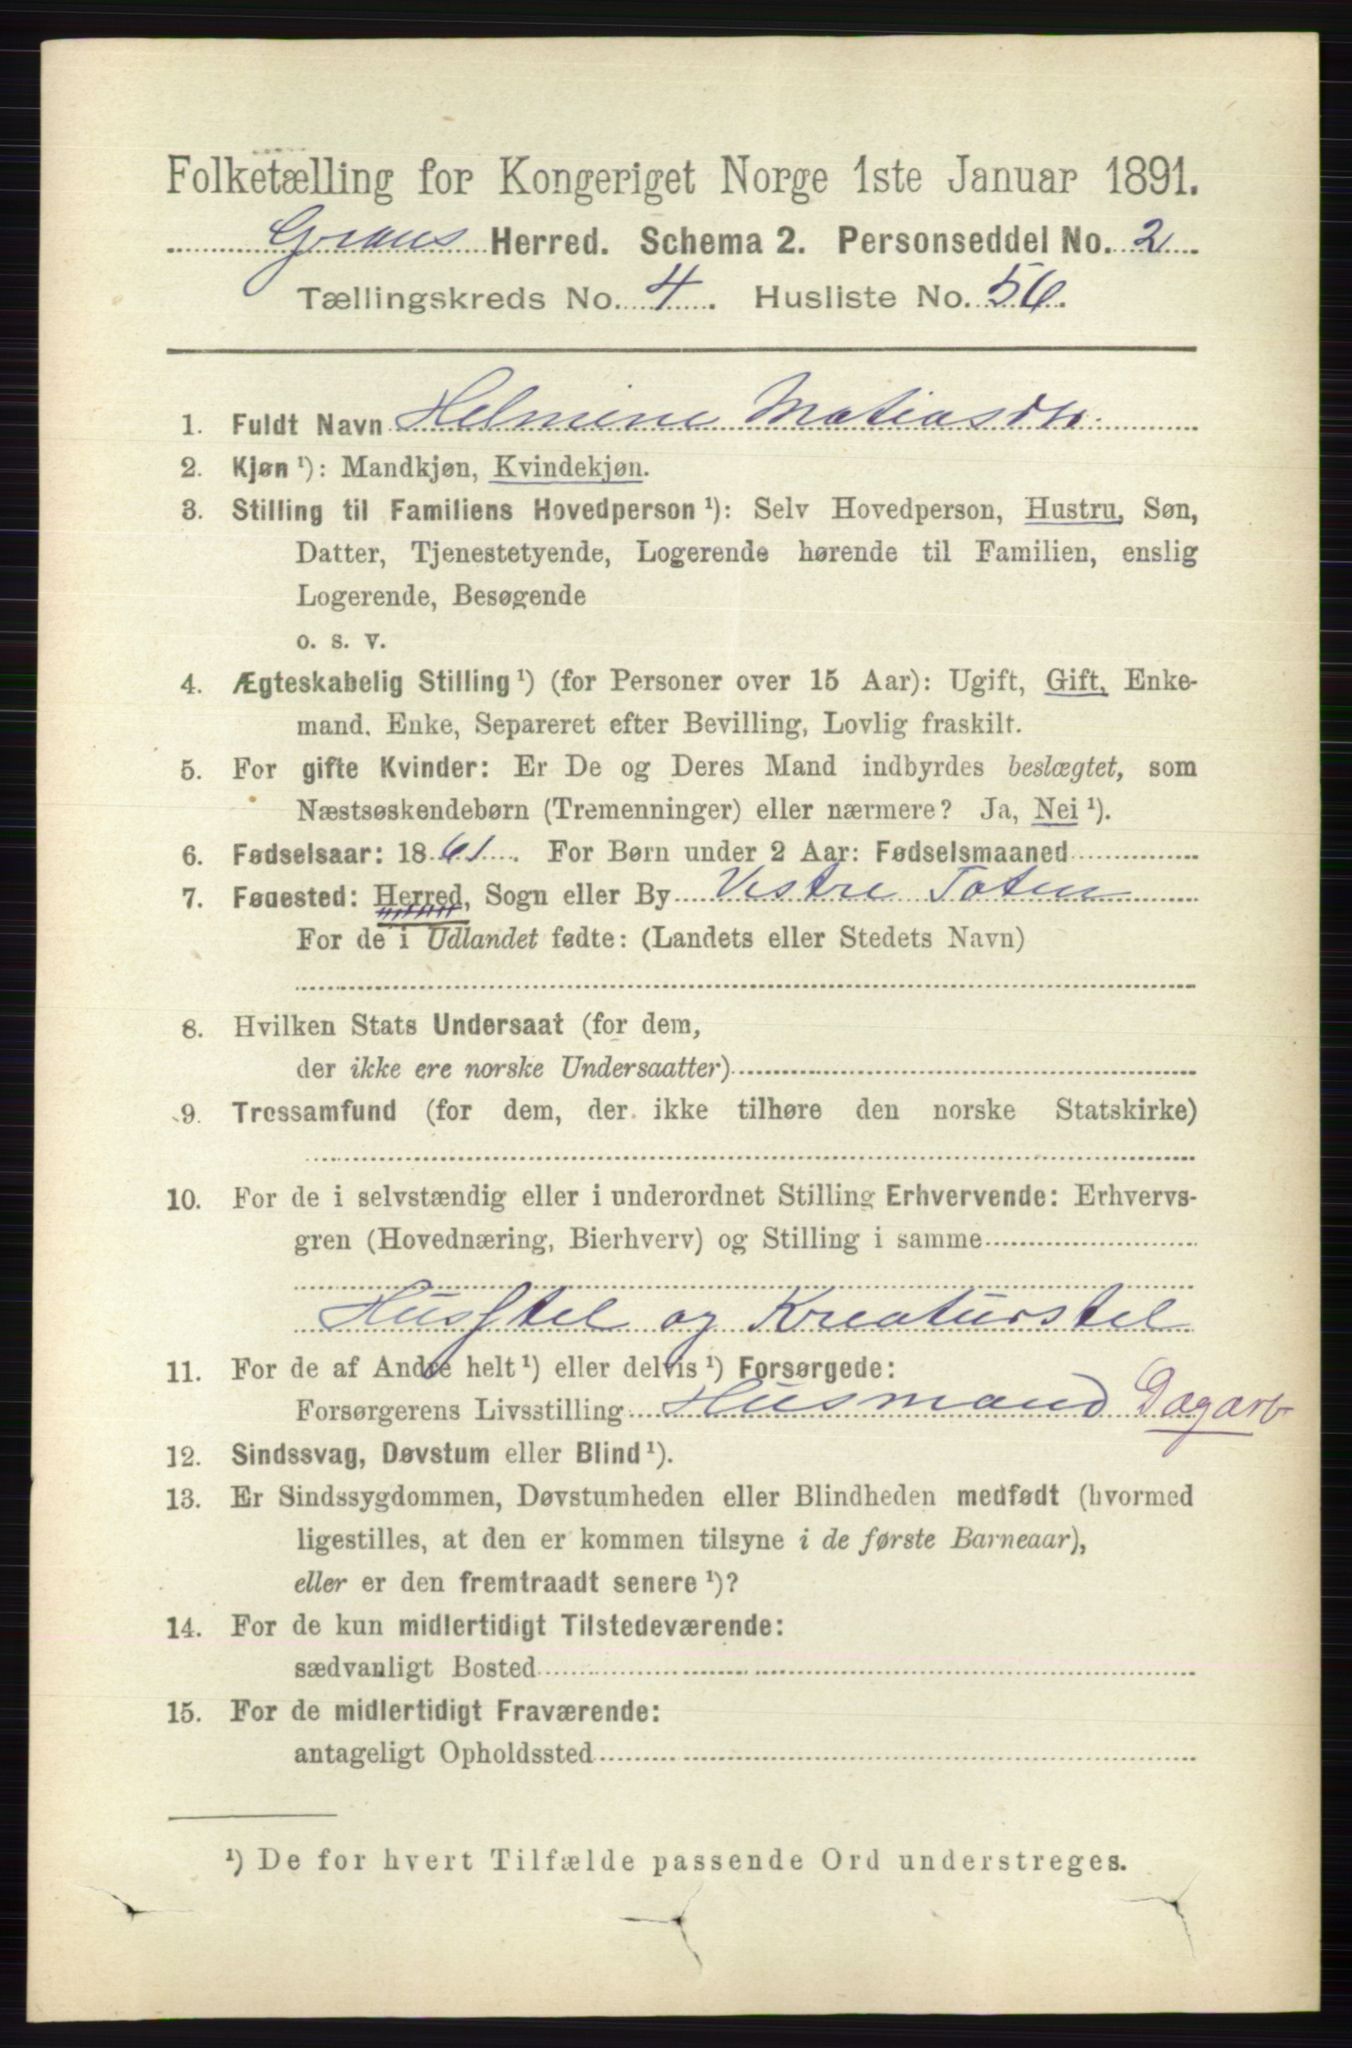 Folketælling for Kongeriget Norge 1ste Januar 1891.
Grans Herred. Schema 2. Personseddel No. 2.
Tællingskreds No. 4. Husliste No. 56.
1. Fuldt Navn Helmine Matiasdtr.
2. Kjøn ¹): Mandkjøn, Kvindekjøn.
3. Stilling til Familiens Hovedperson ¹): Selv Hovedperson, Hustru, Søn,
Datter, Tjenestetyende, Logerende hørende til Familien, enslig
Logerende, Besøgende
o. s. v.
4. Ægteskabelig Stilling ¹) (for Personer over 15 Aar): Ugift, Gift, Enke-
mand, Enke, Separeret efter Bevilling, Lovlig fraskilt.
5. For gifte Kvinder: Er De og Deres Mand indbyrdes beslægtet, som
Næstsøskendebørn (Tremenninger) eller nærmere? Ja, Nei ¹).
6. Fødselsaar: 1861. For Børn under 2 Aar: Fødselsmaaned
7. Føuested: Herred, Sogn eller By Vestre Toten
For de i Udlandet fødte: (Landets eller Stedets Navn)
8. Hvilken Stats Undersaat (for dem,
der ikke ere norske Undersaatter)
9. Trossamfund (for dem, der ikke tilhøre den norske Statskirke)
10. For de i selvstændig eller i underordnet Stilling Erhvervende: Erhvervs-
gren (Hovednæring, Bierhverv) og Stilling i samme
Husstel og Kreaturstel
11. For de af Andre helt ¹) eller delvis ¹) Forsørgede:
Forsørgerens Livsstilling Husmand Dagarb
12. Sindssvag, Døvstum eller Blind ¹).
13. Er Sindssygdommen, Døvstumheden eller Blindheden medfødt (hvormed
ligestilles, at den er kommen tilsyne i de første Barneaar),
eller er den fremtraadt senere ¹)?
14. For de kun midlertidigt Tilstedeværende:
sædvanligt Bosted
15. For de midlertidigt Fraværende:
antageligt Opholdssted
¹) De for hvert Tilfælde passende Ord understreges.